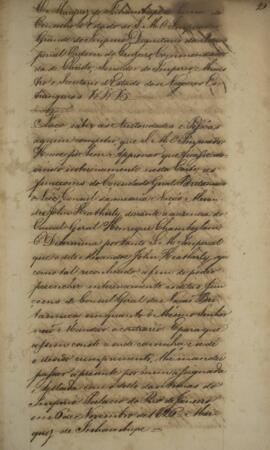 O Marquez de Inhambupe
Conselho d'Estado de S. M. O
Grande do Imperio, Dignitario da
perial Ordem do Cruzeiro, Commenda
da de Christo, Senador do Imperio, Minis
tro e Secretario d'Estado dos Negocios Es
trangeiros V. V. V.
Faço saber ás Authoridades e Pessoas
a quem competir que S. M. O Imperador
Houve por bem Approvar que
interinamente nesta Corte as
funcções do Consulado Geral Britannico
o Vice Consul da mesma Nação Alexan
dre John Heatherly, durante a ausencia do
Consul Geral Henrique Chamberlain
E Determina por tanto S. M. Imperial
que o dito Alexandre John Heatherly, seja
como tal reconhecido a fim de poder
preencher interinamente as ditas fun
cções de Consul Geral da Nação Bri
tannica em quanto O Mesmo Senhor
não Mandar o contrario. E para que
a quem convier conste e se dê
o devido cumprimento, lhe mandei
passar a presente por mim assignada
e sellada com o sello das Armas do
Imperio. Palacio do Rio de Janeiro
em 6 de Novembro de 1826. Mar
quez de Inhambupe.